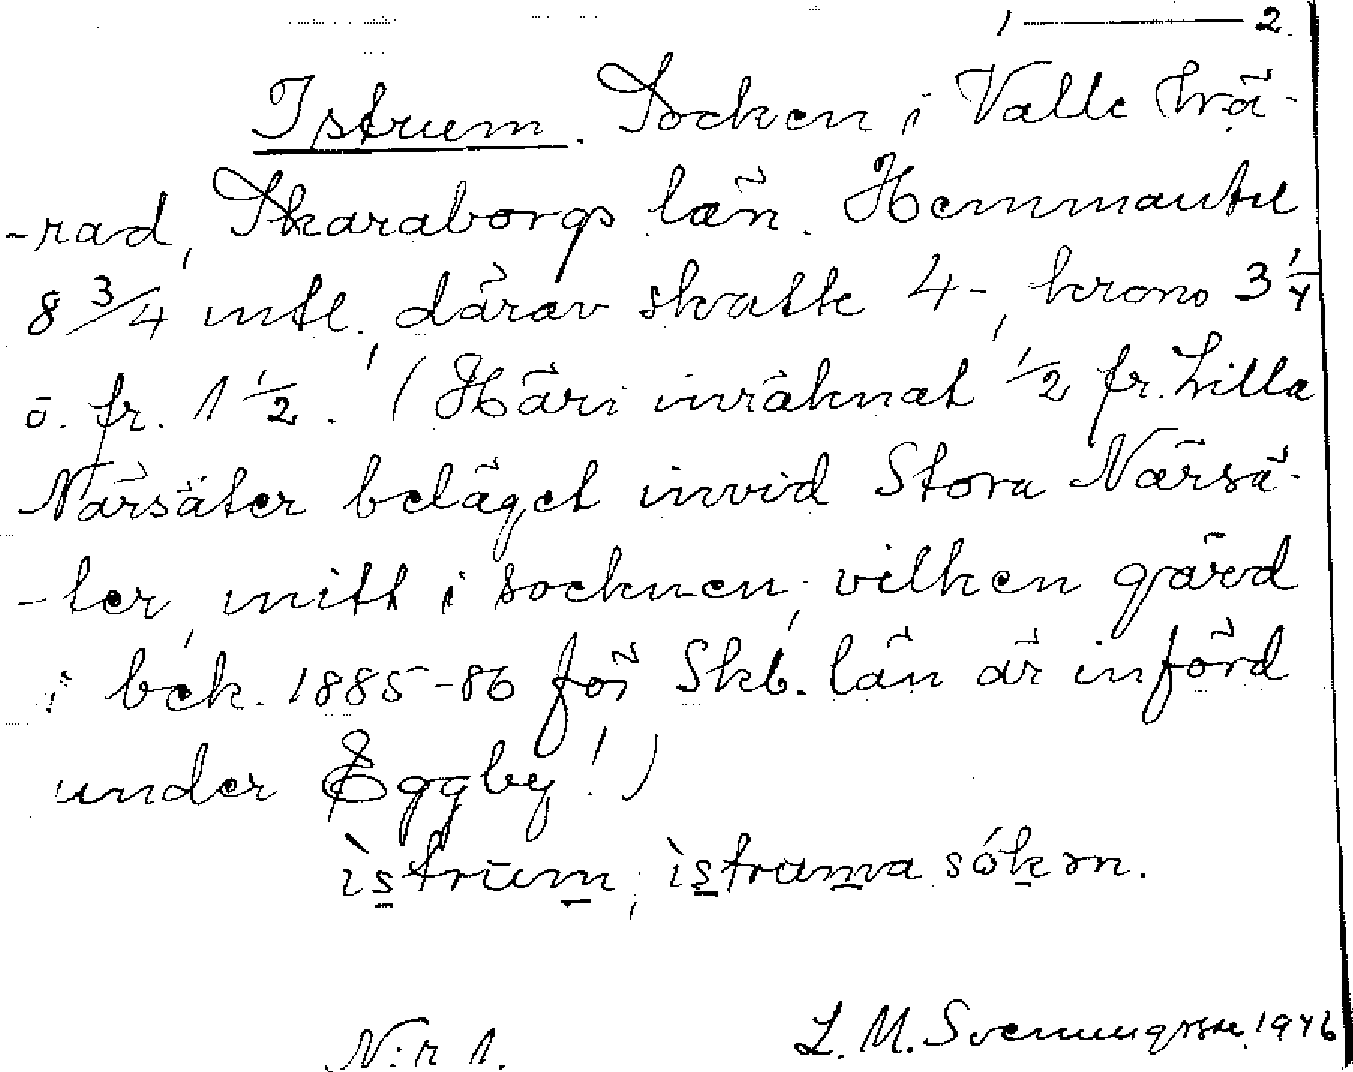 1 — 2.
Istrum. Socken i Valle hä-
-rad, Skaraborgs län. Hemmantal
8 3/4 mtl., därav skatte 4-, krono 3 1/4
o. fr. 1 1/2. (Häri inräknat 1/2 fr. Lilla
Närsäter beläget invid Stora Närsä-
-ter, mitt i socknen, vilken gård
i bek. 1885-86 för Skb. län är införd
under Eggby!)
ìstrūm, ìstruma sókən.
N:r 1. L. M. Svenungsson 1946